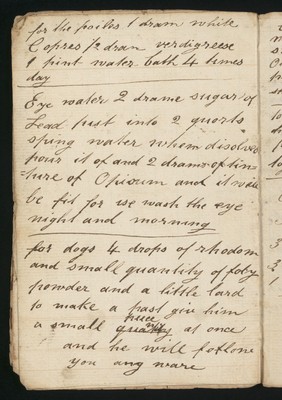 for the poiles 1 dram white
Copres ½ dram verdigreese
1 pint water bath 4 times
day
Eye water 2 drame sugar of
Lead put into 2 quorts
spring water when disolve
pour it of and 2 drams of tin
ture of Opium and it will
be fit for use wash the eye
night and morning
for dogs 4 drops of rhodom
and small quantity of foby
powder and a little lard
to make a past give him
a small peece at once
and he will folone
you any ware